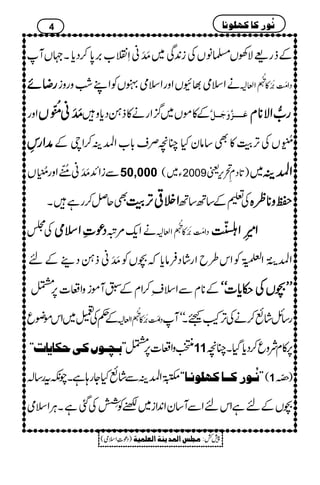 نُور کا کھلونا 4
کے ذریعے لاکھوں مسلمانوں کی زندگی میں مَدَنی اِنقِلاب برپا کردیا۔ جہاں آپ
دامت برکاتہم العالیہ نے اسلامی بھائیوں اور اسلامی بہنوں کو اپنے شب وروز رضائے
ربُّ الانام عَزَّوَجَلَّ کے کاموں میں گزارنے کا ذہن دیا وہیں مَدَنی مُنّوں اور
مُنّیوں کی تربیت کا بھی سامان کیا چنانچہ صرف باب المدینہ کراچی کے مدارِسُ
المدینہ میں (تادمِ تحریر یعنی 2009 میں) 50,000 سے زائد مَدَنی مُنّے اور مُنّیاں
حفظ وناظرہ کی تعلیم کے ساتھ ساتھ اخلاقی تربیت بھی حاصل کررہے ہیں۔
امیرِ اہلسنّت دامت برکاتہم العالیہ نے ایک مرتبہ دعوتِ اسلامی کی مجلس
المدینۃ العلمیۃ کو اس طرح ارشاد فرمایا کہ بچوں کو مَدَنی ذہن دینے کے لئے
”بچوں کی حکایات“ کے نام سے اسلافِ کرام کے سبق آموز واقعات پر مشتمل
رسائل شائع کرنے کی ترکیب کیجئے“ آپ دامت برکاتہم العالیہ کے حکم کی تعمیل میں اس موضوع
پر کام شروع کردیا گیا۔ چنانچہ 11 منتخب واقعات پر مشتمل ”بچوں کی حکایات“
(حصہ 1) ”نُور کا کھلونا“ مکتبۃ المدینہ سے شائع کیا جارہا ہے۔ چونکہ یہ رسالہ
بچوں کے لئے ہے اس لئے اسے آسان انداز میں لکھنے کی کوشش کی گئی ہے۔ ہر اسلامی
پیش کش: مجلس المدینۃ العلمیۃ (دعوتِ اسلامی)